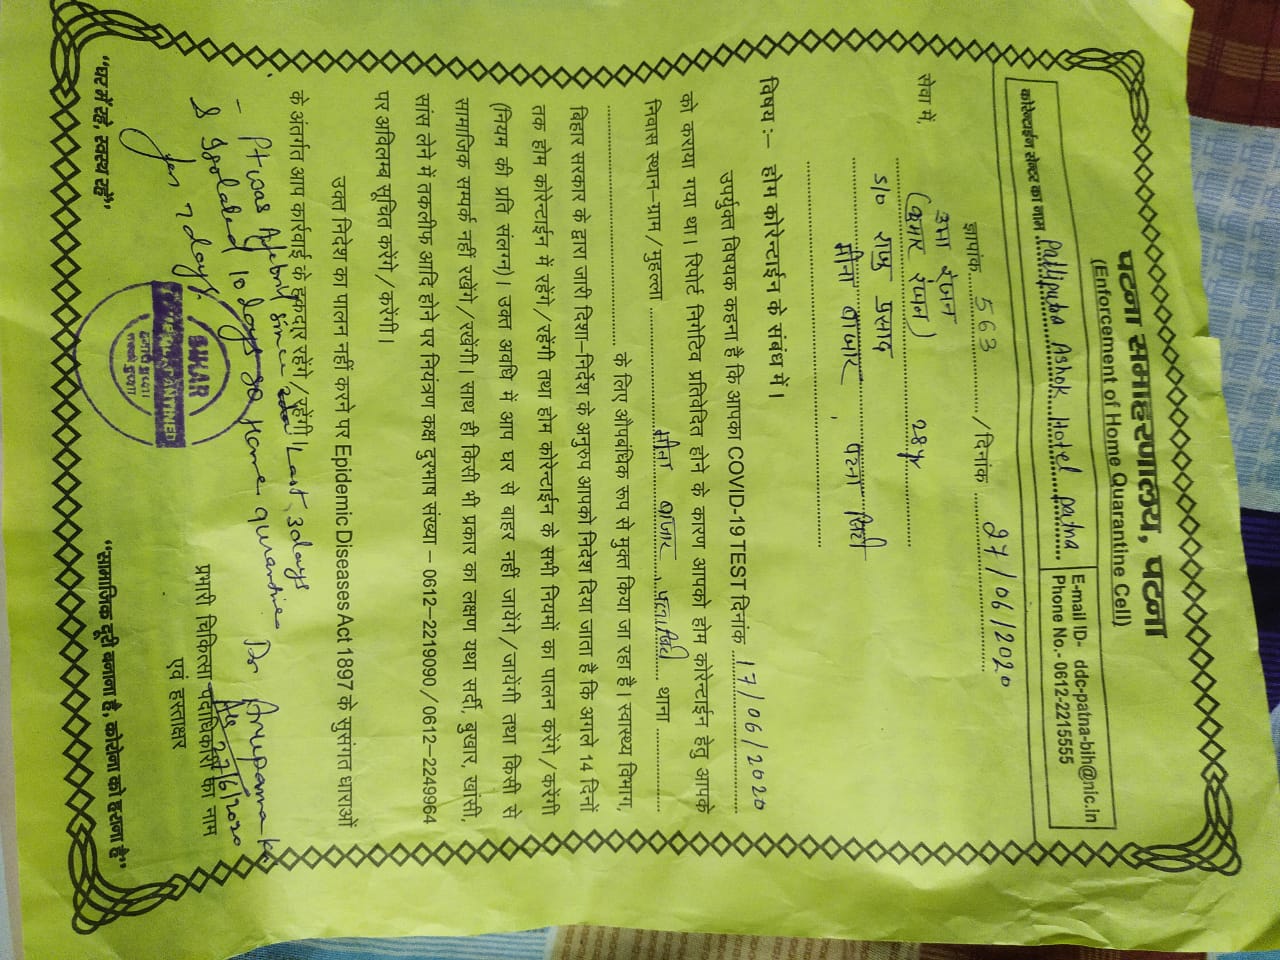 पटना समाहरणालय, पटना
(Enforcement of Home Quarantine Cell)
कोरेन्टाईन सेन्टर का नाम Patliputra Ashok Hotel Patna
E-mail ID- ddc-patna-bih@nic.in
Phone No.- 0612-2215555
ज्ञापांक 563 /दिनांक 27/06/2020
सेवा में,
रंजन
(कुमार रंजन) 28
S/o राजू प्रसाद
मीना बाजार, पटना सिटी
विषय :- होम कोरेन्टाईन के संबंध में।
उपर्युक्त विषयक कहना है कि आपका COVID-19 TEST दिनांक 17/06/2020
को करवा गया था। रिपोर्ट निगेटिव प्रतिवेदित होने के कारण आपको होम कोरेन्टाईन हेतु आपके
निवास स्थान–ग्राम/मुहल्ला मीना बाजार, थाना
के लिए औपबंधिक रूप से मुक्त किया जा रहा है। स्वास्थ्य विभाग,
बिहार सरकार के द्वारा जारी दिशा–निर्देश के अनुरुप आपको निदेश दिया जाता है कि अगले 14 दिनों
तक होम कोरेन्टाईन में रहेंगे/रहेंगी तथा होम कोरेन्टाईन के सभी नियमों का पालन करेंगे/करेंगी
(नियम की प्रति संलग्न)। उक्त अवधि में आप घर से बाहर नहीं जायेंगे/जायेंगी तथा किसी से
सामाजिक सम्पर्क नहीं रखेंगे/रखेंगी। साथ ही किसी भी प्रकार का लक्षण यथा सर्दी, बुखार, खांसी,
सांस लेने में तकलीफ आदि होने पर नियंत्रण कक्ष दुरभाष संख्या – 0612–2219090/0612–2249964
पर अविलम्ब सुचित करेंगे/करेंगी।
उक्त निदेश का पालन नहीं करने पर Epidemic Diseases Act 1897 के सुसंगत धाराओं
के अंतर्गत आप कार्रवाई के हकदार रहेंगे/रहेंगी।
- Pt was Afebrile since Last 3 days
& Isolated 10 days so Home quarantine
for 7 days.
BIHAR
Dr Anupama
27/6/2020
प्रभारी चिकित्सा पदाधिकारी का नाम
एवं हस्ताक्षर
"घर में रहें, स्वस्थ रहें" "सामाजिक दूरी बनाना है, कोरोना को हराना है"